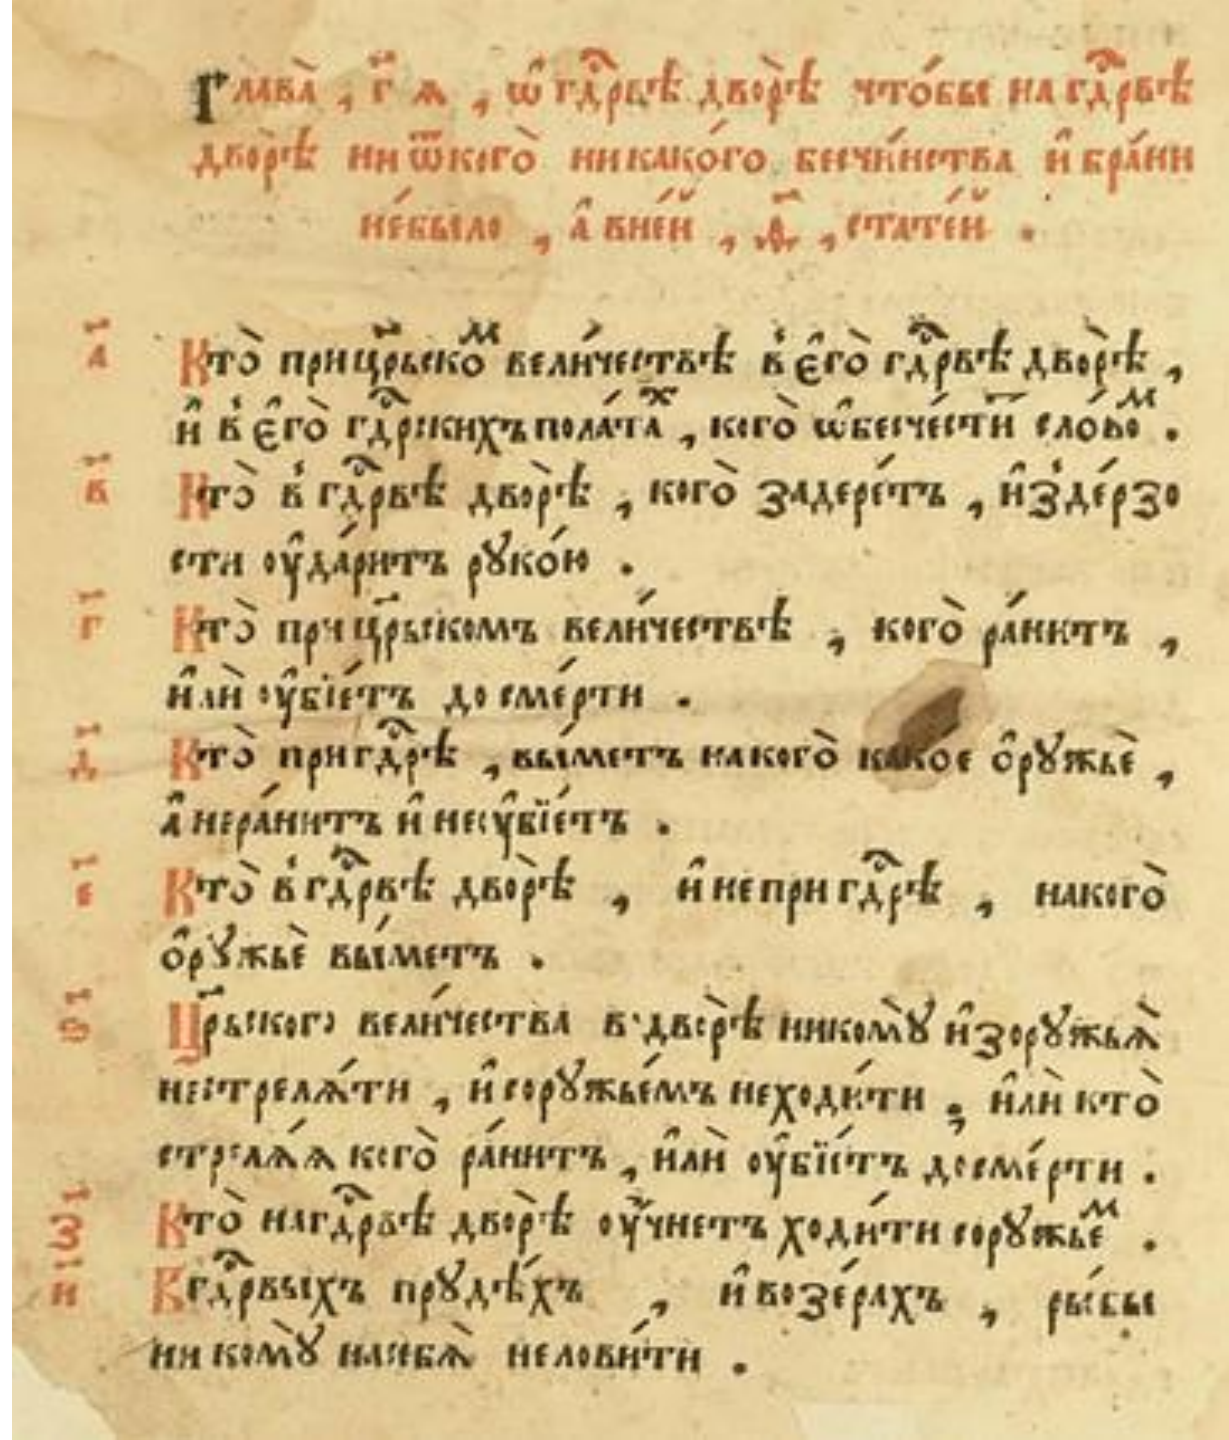 Глава̀ , г҃ я , ѡ҆ гдⷭ҇рвѣ дворѣ̀ что́бы на гдⷭ҇рвѣ
дворѣ̀ ни ѿкого̀ никако́го бесчи́нства и҆ бра́ни
не́было , а҆ вне́й , ѳ҃ , стате́й .
а҃ Кто̀ прицр҃ьскоⷨ вели́чествѣ в̾ є҆го̀ гдⷭ҇рвѣ дворѣ̀ ,
и҆ в̾ є҆го̀ гдⷭ҇рскихъ пола́таⷯ , кого̀ ѡ҆бесче́ститⸯ сло́воⷨ .
в҃ Кто̀ в̾ гдⷭ҇рвѣ дворѣ̀ , кого̀ задере́тъ , и҆з̾де́рзо
сти ᲂу҆да́ритъ рꙋко́ю .
г҃ Кто̀ при цр҃ьскомъ вели́чествѣ , кого̀ ра́нитъ ,
и҆лѝ ᲂу҆бїе́тъ до сме́рти .
д҃ Кто̀ пригдⷭ҇рѣ , вы́метъ накого̀ какое о҆рꙋжьѐ ,
а҆ нера́нитъ и҆ неᲂу҆бїе́тъ .
е҃ Кто̀ в̾ гдⷭ҇рвѣ дворѣ̀ , и҆ непри гдⷭ҇рѣ , накого̀
о҆рꙋжьѐ вы́метъ .
Цр҃ьского вели́чества в дворѣ̀ никомꙋ̀ и҆зорꙋжьѧ̀
нестрелѧ́ти , и҆ сорꙋжье́мъ неходи́ти , и҆лѝ кто̀
стрелѧ́ѧ кого̀ ра́нитъ , и҆лѝ ᲂу҆бїе́тъ досме́рти .
з҃ Кто̀ нагдⷭ҇рвѣ дворѣ̀ ᲂу҆чнетъ ходи́ти сорꙋжьеⷨ .
и҃ Вгдⷭ҇рвыхъ прꙋдѣ́хъ , и҆ возе́рахъ , ры́бы
ни комꙋ̀ насебѧ̀ нелови́ти .